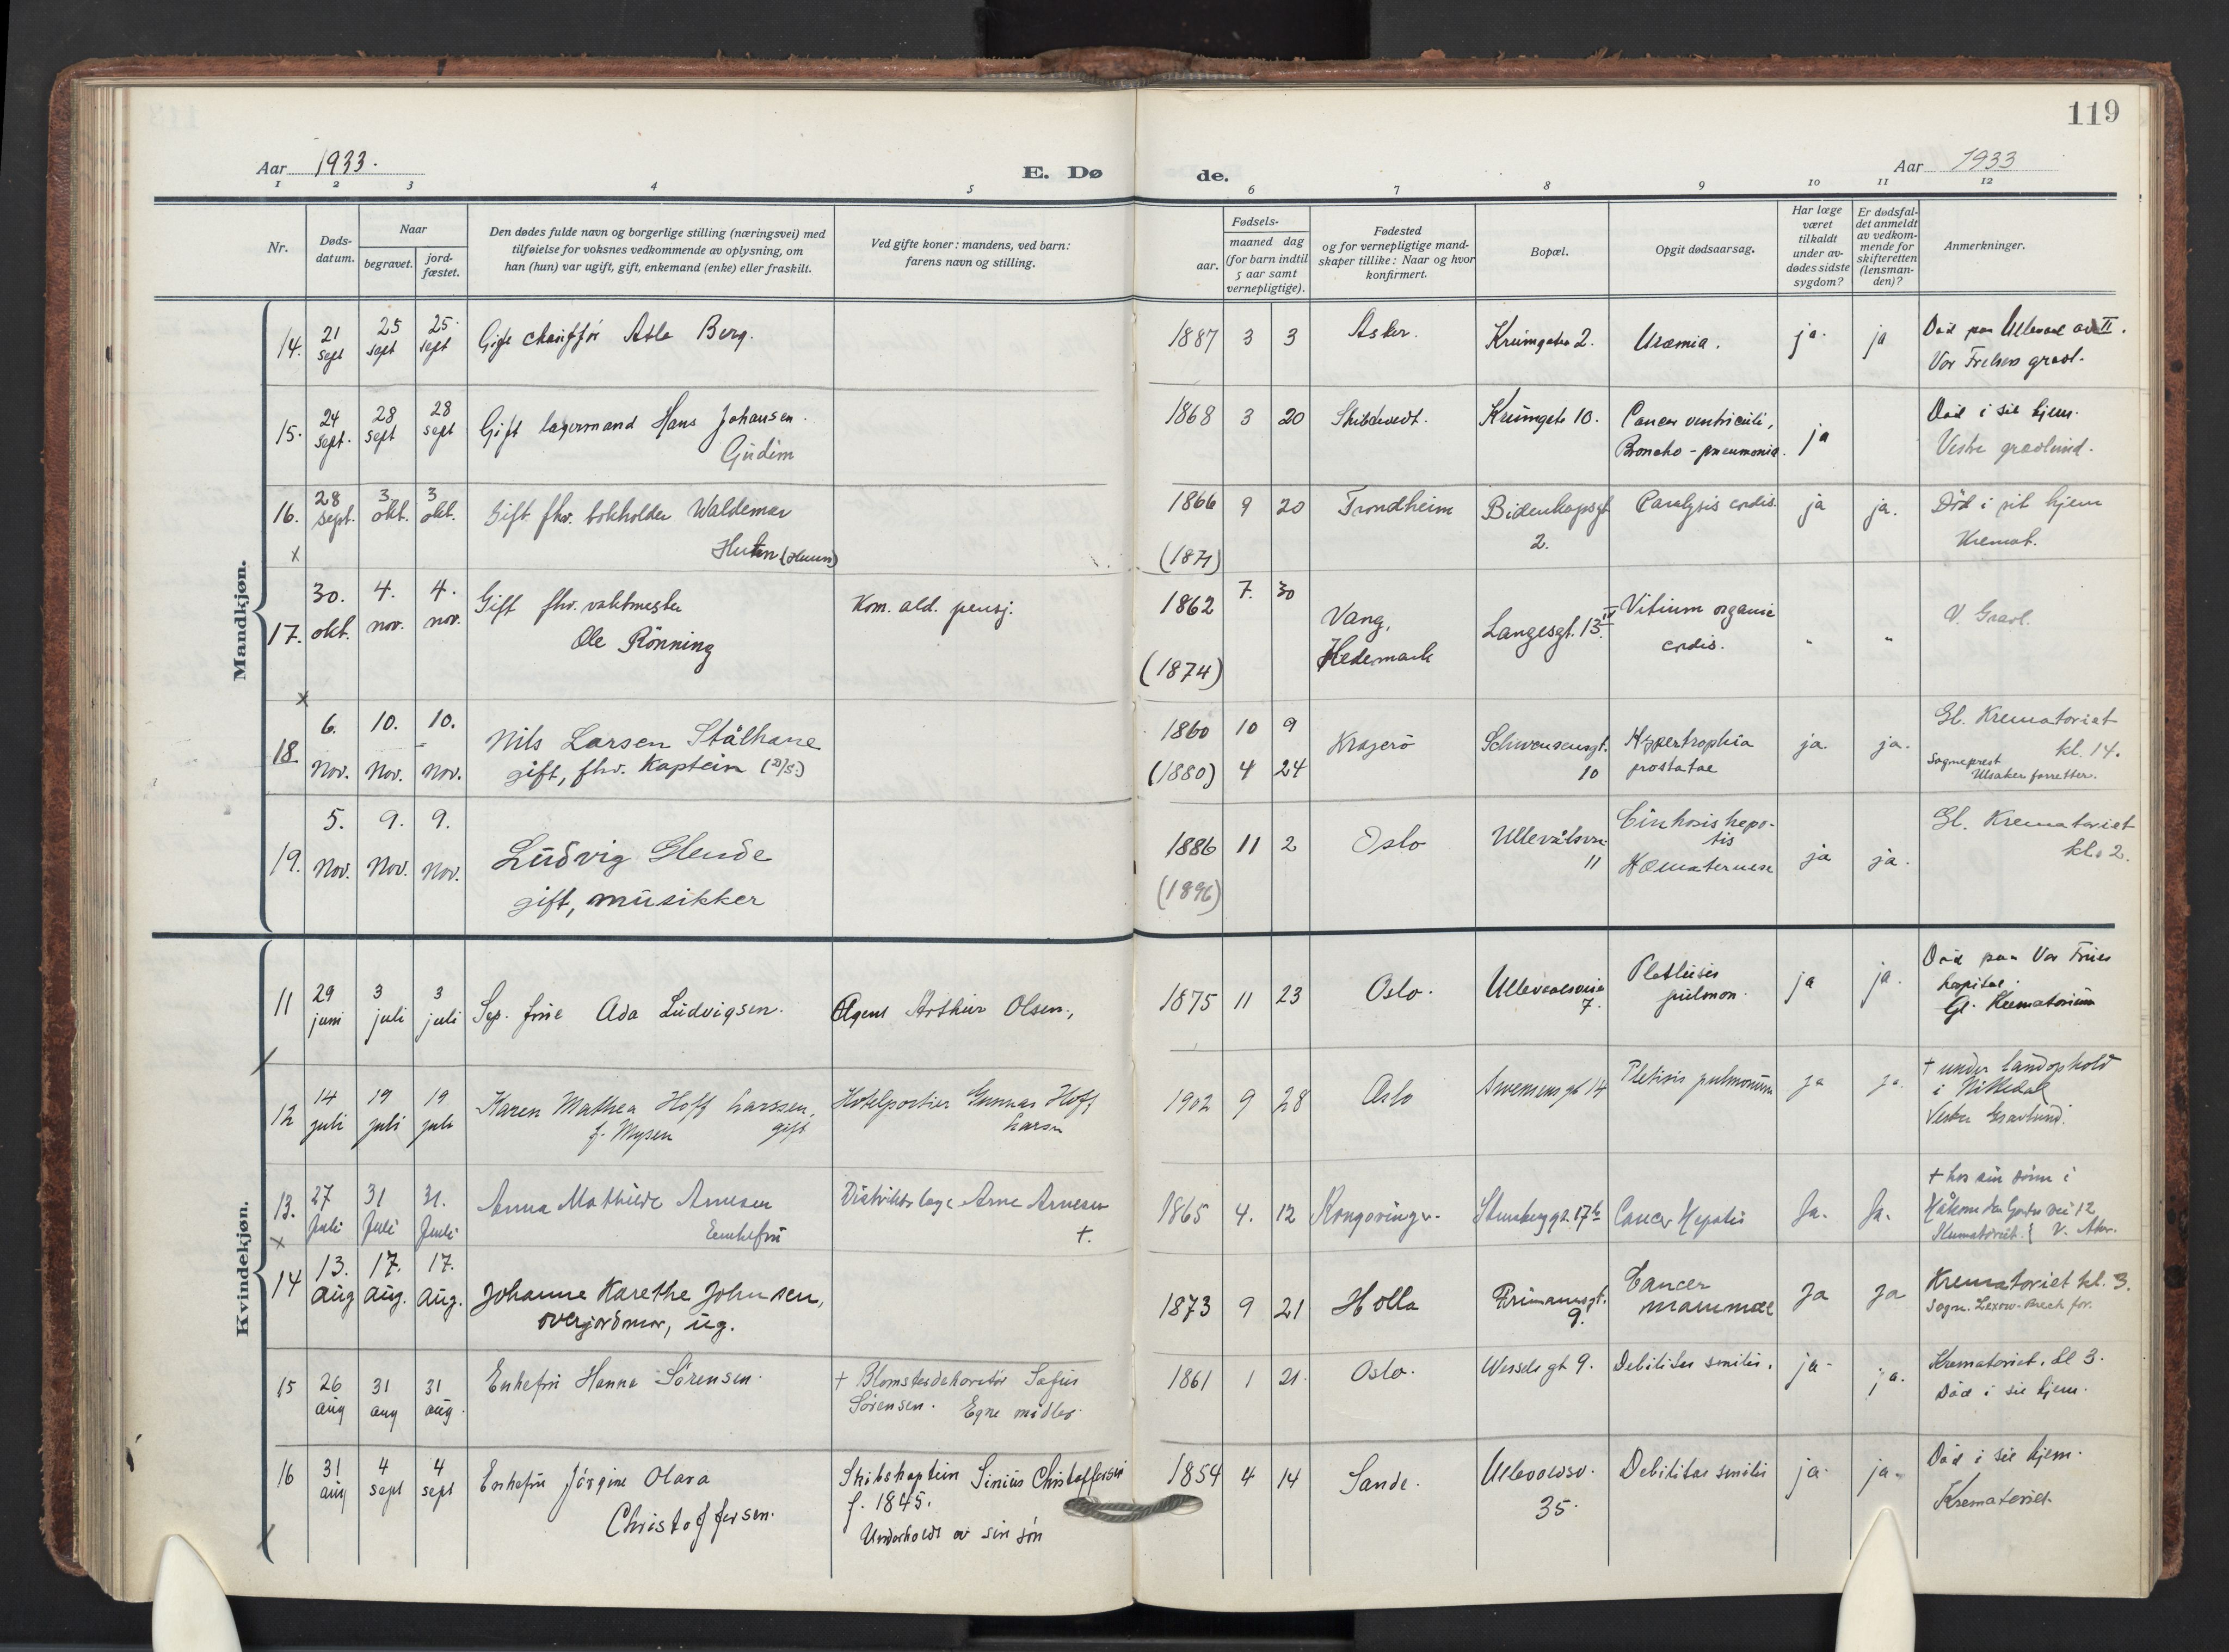 119
Aar 1933.
E. Dø
de.
Aar 1933
1 2 3 4 5 6 7 8 9 10 11 12
Nr.
Døds-
datum.
Naar
begravet.
jord-
fæstet.
Den dødes fulde navn og borgerlige stilling (næringsvei) med
tilføielse for voksnes vedkommende av oplysning, om
han (hun) var ugift, gift, enkemand (enke) eller fraskilt.
Ved gifte koner: mandens, ved barn:
farens navn og stilling.
Fødsels-
aar.
maaned dag
(for barn indtil
5 aar samt
vernepligtige).
Fødested
og for vernepligtige mand-
skaper tillike: Naar og hvor
konfirmert.
Bopæl.
Opgit dødsaarsag.
Har læge
været
tilkaldt
under av-
dødes sidste
sygdom?
Er dødsfal-
det anmeldt
av vedkom-
mende for
skifteretten
(lensman-
den)?
Anmerkninger.
Mandkjøn.
14. 21 sept 25 sept 25 sept Gift chauffør Atle Berg. 1887 3 3 Asker. Krumgaten 2. Uræmia. ja. ja Död paa Ullevaal avd II.
Vor Frelsers gravl.
15. 24 sept. 28 sept 28 sept Gift lagermand Hans Johansen 1868 3 20 Skibtvedt. Krumgate 10. Cancer ventriculi, ja Död i sit hjem.
Gudim Broncho-pneumonia. Vestre gravlund.
16. 28 sept. 3 okt. 3 okt. Gift fhv. bokholder Waldemar 1866 9 20 Trondheim Bidenkapsgt Paralysis cordis. ja ja. Död i sit hjem
x (Huun) (1871) 2. Kremat.
17. 30. okt. 4. nov. 4. nov. Gift fhv. vaktmester Kom. ald. pensj. 1862 7. 30 Vang, Langesgt. 13 IV Vitium organic " " V. Gravl.
Ole Rönning (1874) Hedemark cordis.
x
18. 6. Nov. 10. Nov. 10. Nov. Nils Larsen Stålhane 1860 10 9 Kragerö Schwensensgt. Hypertrophia ja. ja. Gl. Krematoriet
gift, fhv. Kaptein (D/S) (1880) 4 24 10 prostatae kl. 14.
Sogneprest
Ulsaker forretter.
19. 5. Nov. 9. Nov. 9. Nov. Ludvig Glende 1886 11 2 Oslo Ullevålsvn. Cirrhosis hepa- ja ja. Gl. Krematoriet
gift, musikker (1896) 11 tis kl. 2.
Kvindekjøn.
11 29 juni 3 juli 3 juli Sep. frue Ada Ludvigsen. Agent Arthur Olsen., 1875 11 23 Oslo. Ullevaalsveien 7. Phthisis ja ja. Död paa Vor Frues
pulmon. hospital.
Gl. Krematorium
12 14 juli 19 juli 19 juli Karen Mathea Hoff Larssen, Hotelportier Gunnar Hoff 1902 9 28 Oslo Swensensgt 14 Phtisis pulmonum ja ja. + under landophold
f. Mysen gift Larsen i Nittedal
Vestre Gravlund.
13. 27 Juli 31 Juli 31. Juli Anna Mathilde Arnesen Distriktslæge Arne Arnesen 1865 4. 12 Kongsvinger. Stensberggt. 17b Cancer Hepatis Ja. Ja. + hos sin sönn i
x Enkefru +. Håkon den Godes vei 12
Krematoriet. V. Aker.
14 13. aug 17. aug. 17. aug. Johanne Karethe Johnsen, 1873 9 21 Holla Frimannsgt. 9. Cancer mammae Ja Ja Krematoriet kl. 3.
overjordmor, ug.
15 26 aug 31 aug 31 aug. Enkefru Hanna Sörensen. + Blomsterdekoratör Sofus 1861 1 21. Oslo. Wesselsgt 9. Debilitas senilis. ja- ja. Krematoriet. kl 3.
Sörensen. Egne midler. Död i sit hjem.
16 31 aug 4 sept 4 sept Enkefru Jörgine Olava Skibskaptein Sinius Christoffersen 1854 4 14 Sande. Ullevaalsv. 35. Debilitas senilis ja. ja. Död i sit hjem.
Christoffersen. f. 1845. Krematoriet.
Underholdt av sin sön